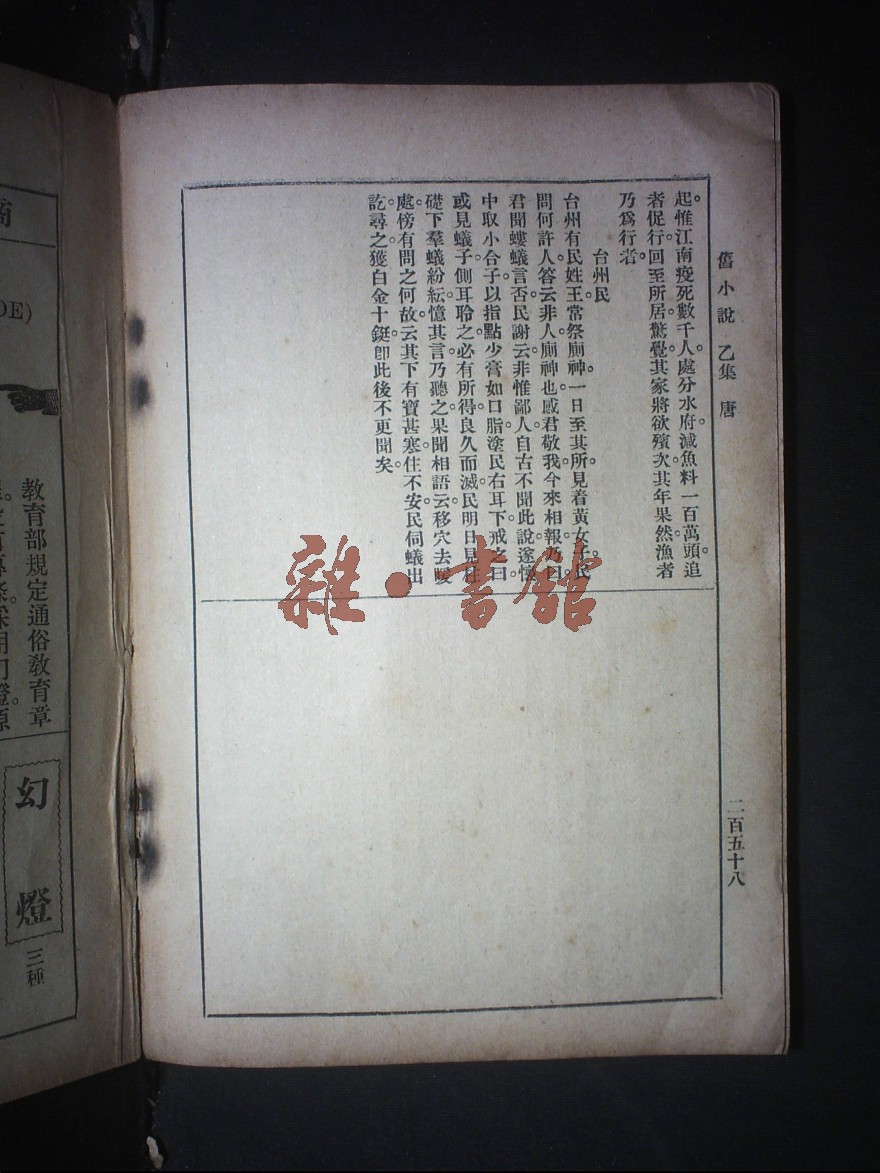 舊小說 乙集 唐
二百五十八
起。惟江南疫死數千人。處分水府。減魚料一百萬頭。追
者促行。回至所居。驚覺。其家將欲殯。次其年果然。漁者
乃爲行者。
台州民
台州有民姓王。常祭廟神。一日至其所。見着黃女士。民
問何許人。答云。非人。廟神也。感君敬我。今來相報。乃曰。
君聞螻蟻言否。民謝云。非惟鄙人。自古不聞此說。遂懷
中取小合子。以指點少膏如口脂。塗民右耳下。戒之曰。
或見蟻子。側耳聆之。必有所得。良久而滅。民明日見柱
礎下羣蟻紛紜。憶其言。乃聽之。果聞相語云。移穴去暖
處。傍有問之何故。云。其下有寶甚寒。住不安。民伺蟻出
訖。尋之。獲白金十鋌。卽此後不更聞矣。
雜·書館
DE)
教育部規定通俗教育章
幻燈
三種